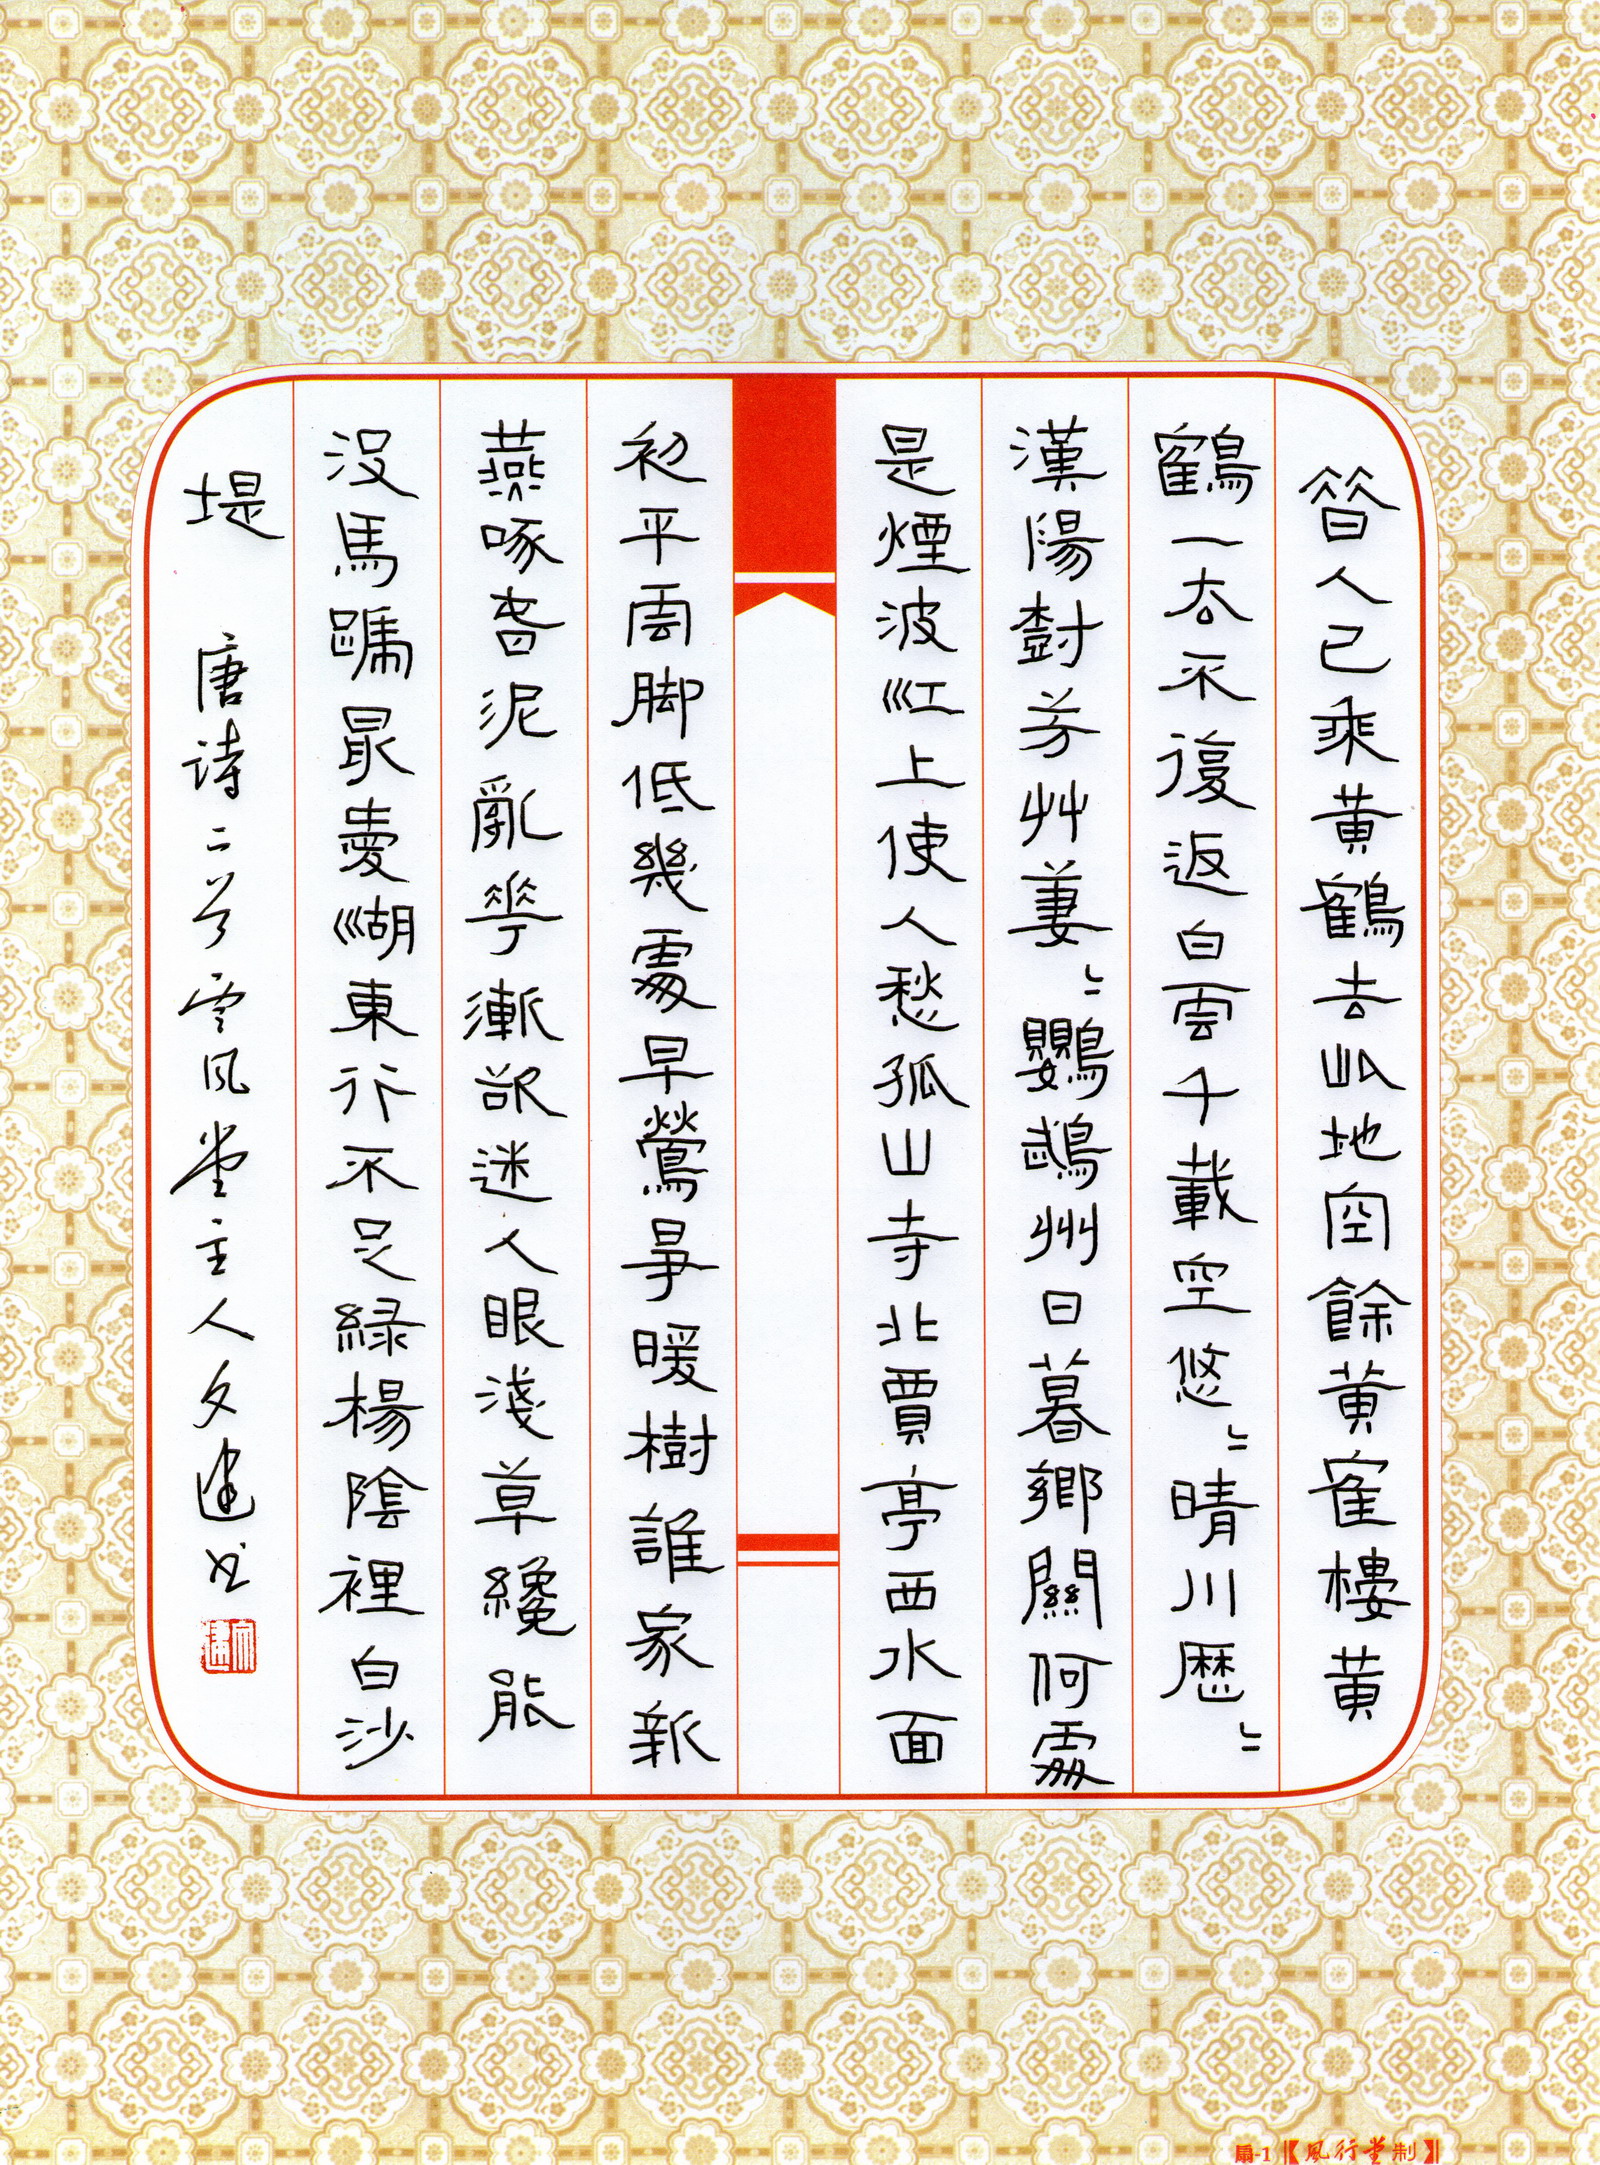 昔人已乘黃鶴去此地空餘黃隺樓黃
鶴一去不復返白雲千載空悠〻晴川歷〻
漢陽樹芳艸萋〻鸚鵡州日暮鄉關何處
是煙波江上使人愁孤山寺北賈亭西水面
初平雲腳低幾處早鶯爭暖樹誰家新
燕啄春泥亂花漸欲迷人眼淺草纔能
沒馬蹄最愛湖東行不足綠楊陰裡白沙
堤
唐詩二首雲風堂主人文建书
扇-1【風行堂制】